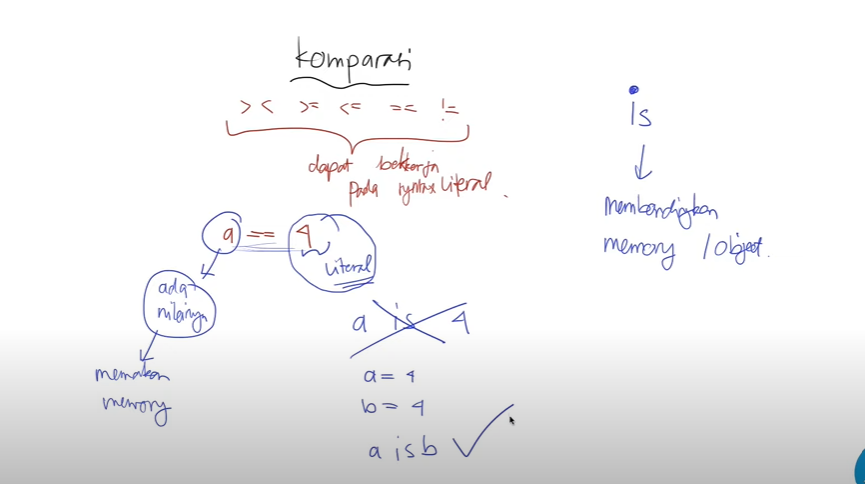 Komparasi
> < >= <= == !=
dapat bekerja
pada syntax literal.
a == 4
literal
ada
nilainya
memakan
memory
a is 4
a = 4
b = 4
a is b ✓
is
membandingkan
memory / object.